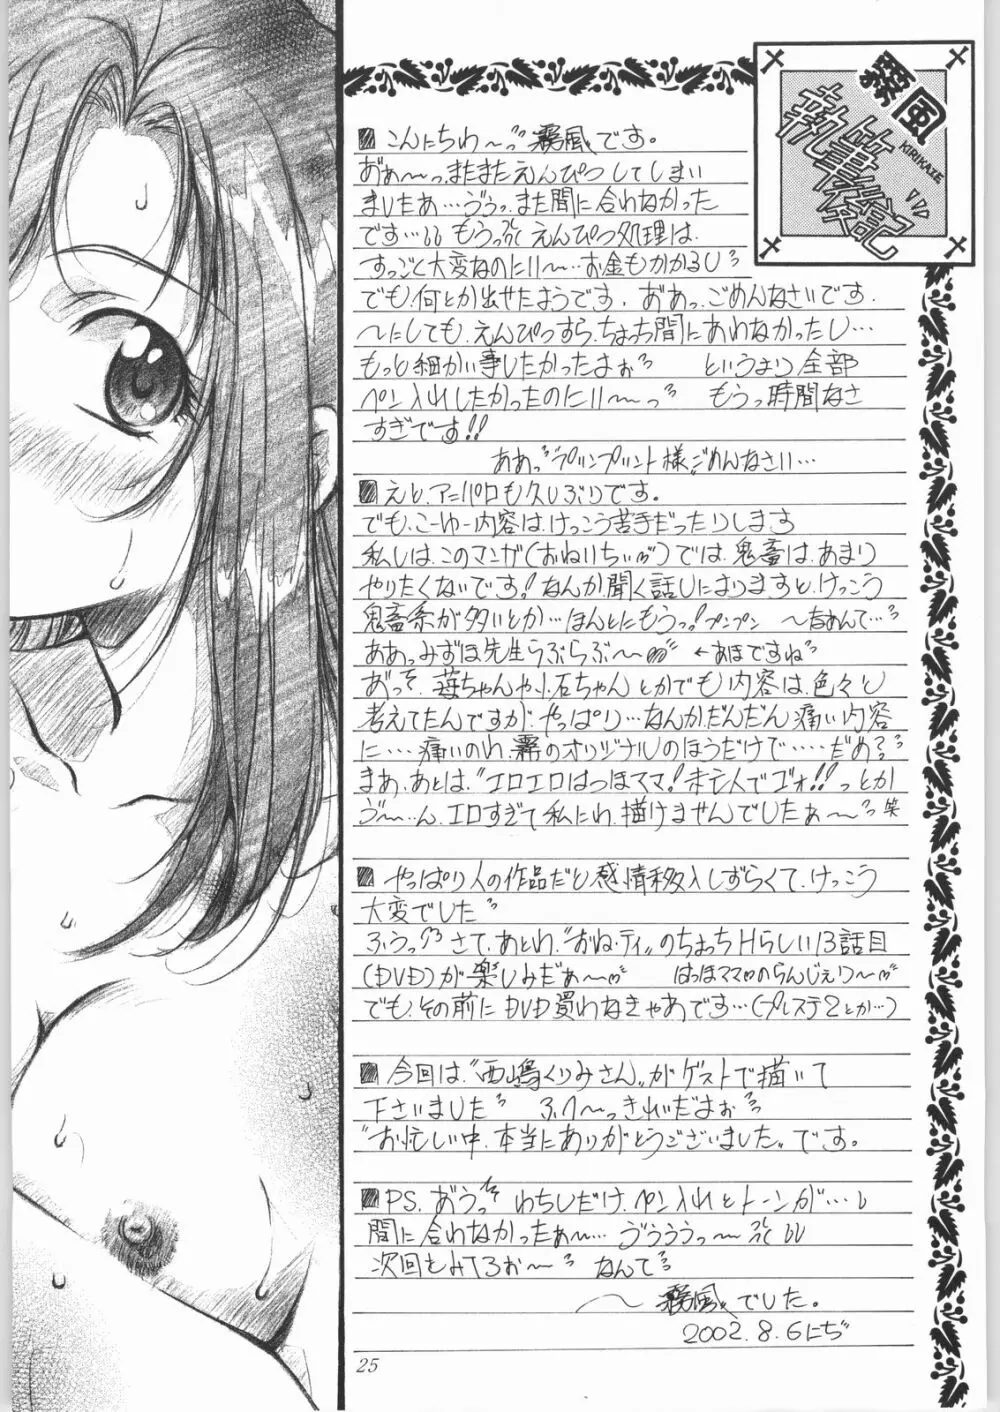 霧風
KIRIKAZE
執筆後記
■こんにちわ〜っ゛霧風です。
おぁ〜っ、またまたえんぴつしてしまい
ましたぁ…ゔぅっ、また間に合わなかった
です… もうっ えんぴつ処理は、
すっごく大変なのに!!〜…お金もかかるし〜
でも、何とか出せたようです、おぁっ、ごめんなさいです、
〜にしても、えんぴつすら、ちょっち間にあわなかったし…
もっと細かい事したかったよぉ〜 というより全部
ペン入れしたかったのに!!〜っ〜 もうっ時間なさ
すぎです!!
ああっ〜プリンプリント様、ごめんなさい…
■えと、アニパロも久しぶりです。
でも、こーゆー内容は、けっこう苦手だったりします
私しは、このマンガ(おね!!ちぃ)では、鬼畜は、あまり
やりたくないです!なんか、聞く話しによりますと、けっこう
鬼畜系が多いとか…ほんとにもうっ!プンプン 〜なぁんて…
ああっ、みずほ先生らぶらぶ〜 ←あほですね
あっ、苺ちゃんや、小石ちゃんとかでも内容は、色々と
考えてたんですが、やっぱり…なんか、だんだん痛い内容
に…痛いのわ、霧のオリジナルのほうだけで‥‥だめ?
まぁ、あとは、“エロエロはっほママ!未亡人でゴォ!!っとか
ゔ〜…ん、エロすぎて私にわ、描けませんでしたぁ〜 笑
■やっぱり人の作品だと感情移入しずらくて、けっこう
大変でした
ふうっ さて、あとわ、“おね・ティ”のちょっちHらしい13話目
(DVD)が楽しみだぁ〜 はっほママのらんじぇり〜
でも、その前にDVD買わなきゃあです…(プレステ2とか…)
■今回は、“西嶋くりみさん”がゲストで描いて
下さいました ふわ〜っきれいだよぉ
“お忙しい中、本当にありがとうございました”です。
■PS、おうっ わちしだけ、ペン入れとトーンが…
間に合わなかったぁ〜… ゔぅぅぅっ〜
次回をみてろぉ〜 なんて
〜霧風でした。
2002.8.6にぢ
25